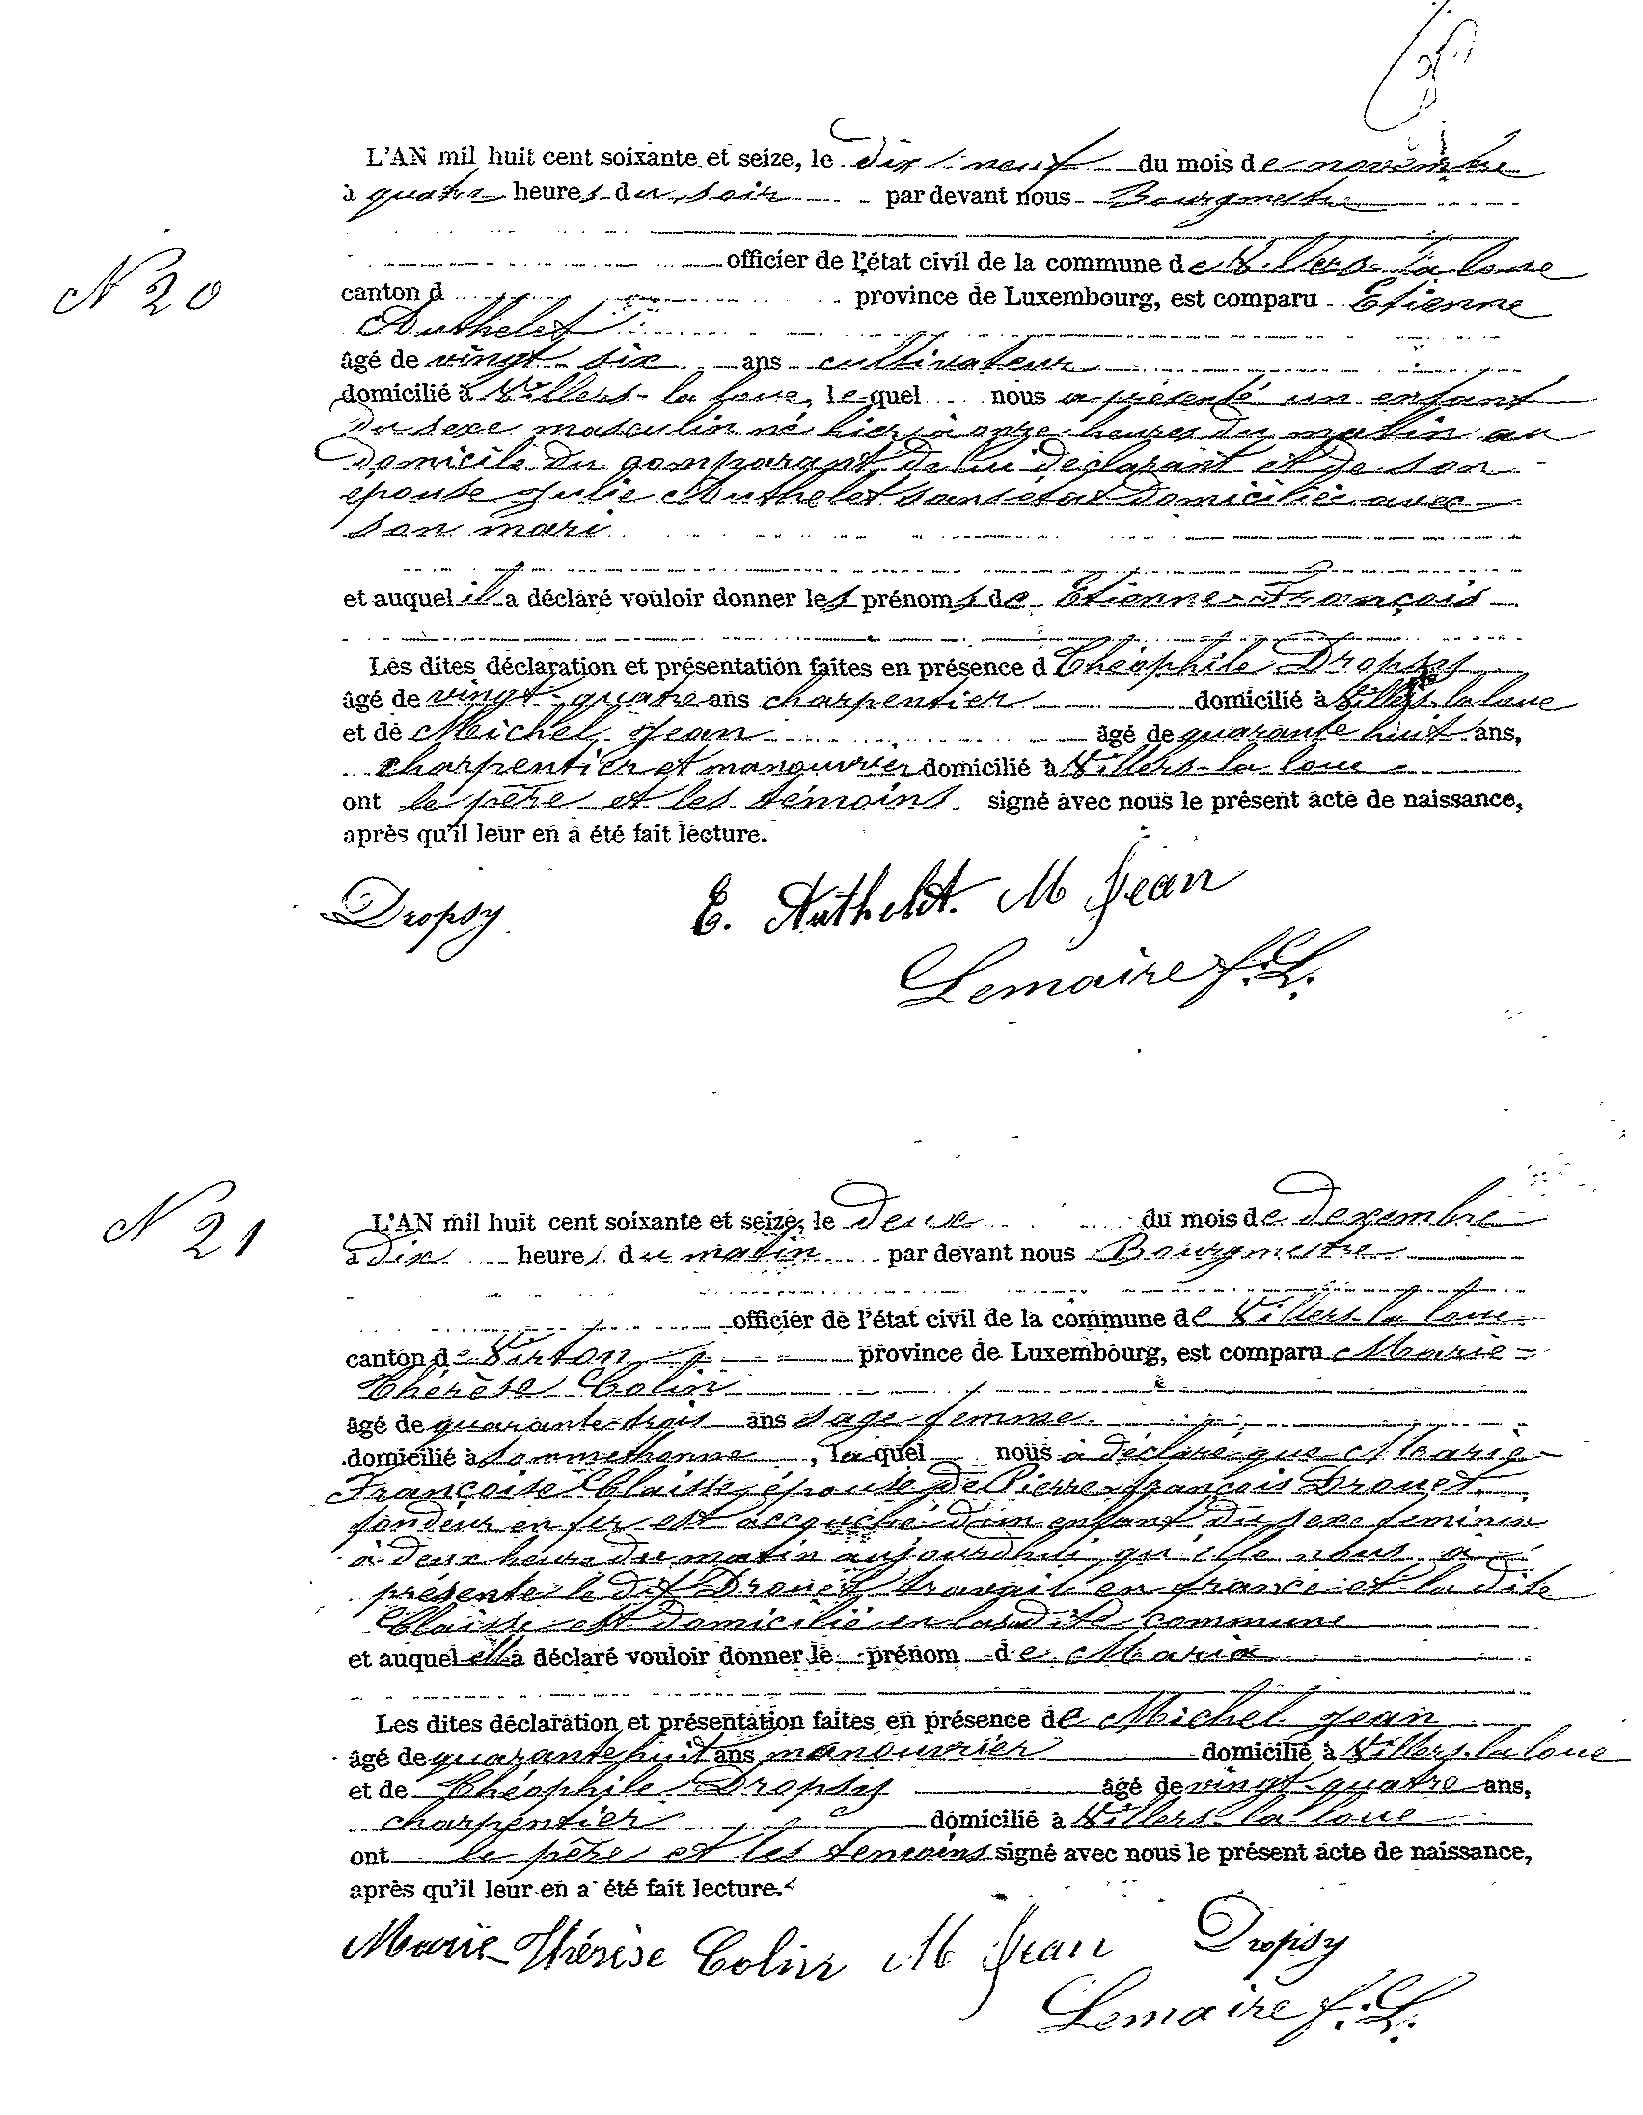 L'AN mil huit cent soixante et seize, le dix-neuf du mois de novembre
à quatre heures du soir par devant nous Bourgmestre
officier de l'état civil de la commune de Villers-la loue
canton d province de Luxembourg, est comparu Etienne
Authelet
âgé de vingt-six ans cultivateur
domicilié à Villers-la loue, lequel nous a présenté un enfant
N 20
du sexe masculin né hier à onze heures du matin au
domicile du comparant, de lui déclarant et de son
épouse Julie Authelet sans état domiciliée avec
son mari
et auquel il a déclaré vouloir donner les prénoms de Etienne-François
Les dites déclaration et présentation faites en présence d Théophile Dropsy
âgé de vingt-quatre ans charpentier domicilié à Villers-la loue
et de Michel Jean âgé de quarante huit ans,
charpentier et manouvrier domicilié à Villers-la loue
ont le père et les témoins signé avec nous le présent acte de naissance,
après qu'il leur en a été fait lecture.
Dropsy E. Authelet. M Jean
Lemaire f.L.
N 21
L'AN mil huit cent soixante et seize, le deux du mois de dexembre
à dix heures du matin par devant nous Bourgmestre
officier de l'état civil de la commune de Villers-la loue
canton de Virton province de Luxembourg, est comparu Marie
Thérèse Colin
âgé de quarante-trois ans sage-femme
domicilié à Sommethonne, laquel nous à déclaré que Marie
Françoise Claisse, épouse de Pierre-françois Drouet
fondeur en fer est accouché d'un enfant du sexe feminin
à deux heure du matin aujourdhui qu'elle nous a
présente le dit Drouet travail en france et la dite
Claisse est domicilié en lasudite commune
et auquel elle a déclaré vouloir donner le prénom de Maria
Les dites déclaration et présentation faites en présence de Michel Jean
âgé de quarante huit ans manouvrier domicilié à Villers-la loue
et de Théophile Dropsy âgé de vingt-quatre ans,
charpentier domicilié à Villers-la loue
ont le père et les temoins signé avec nous le présent acte de naissance,
après qu'il leur en a été fait lecture.
Marie-Thérèse Colin M Jean Dropsy
Lemaire f.L.